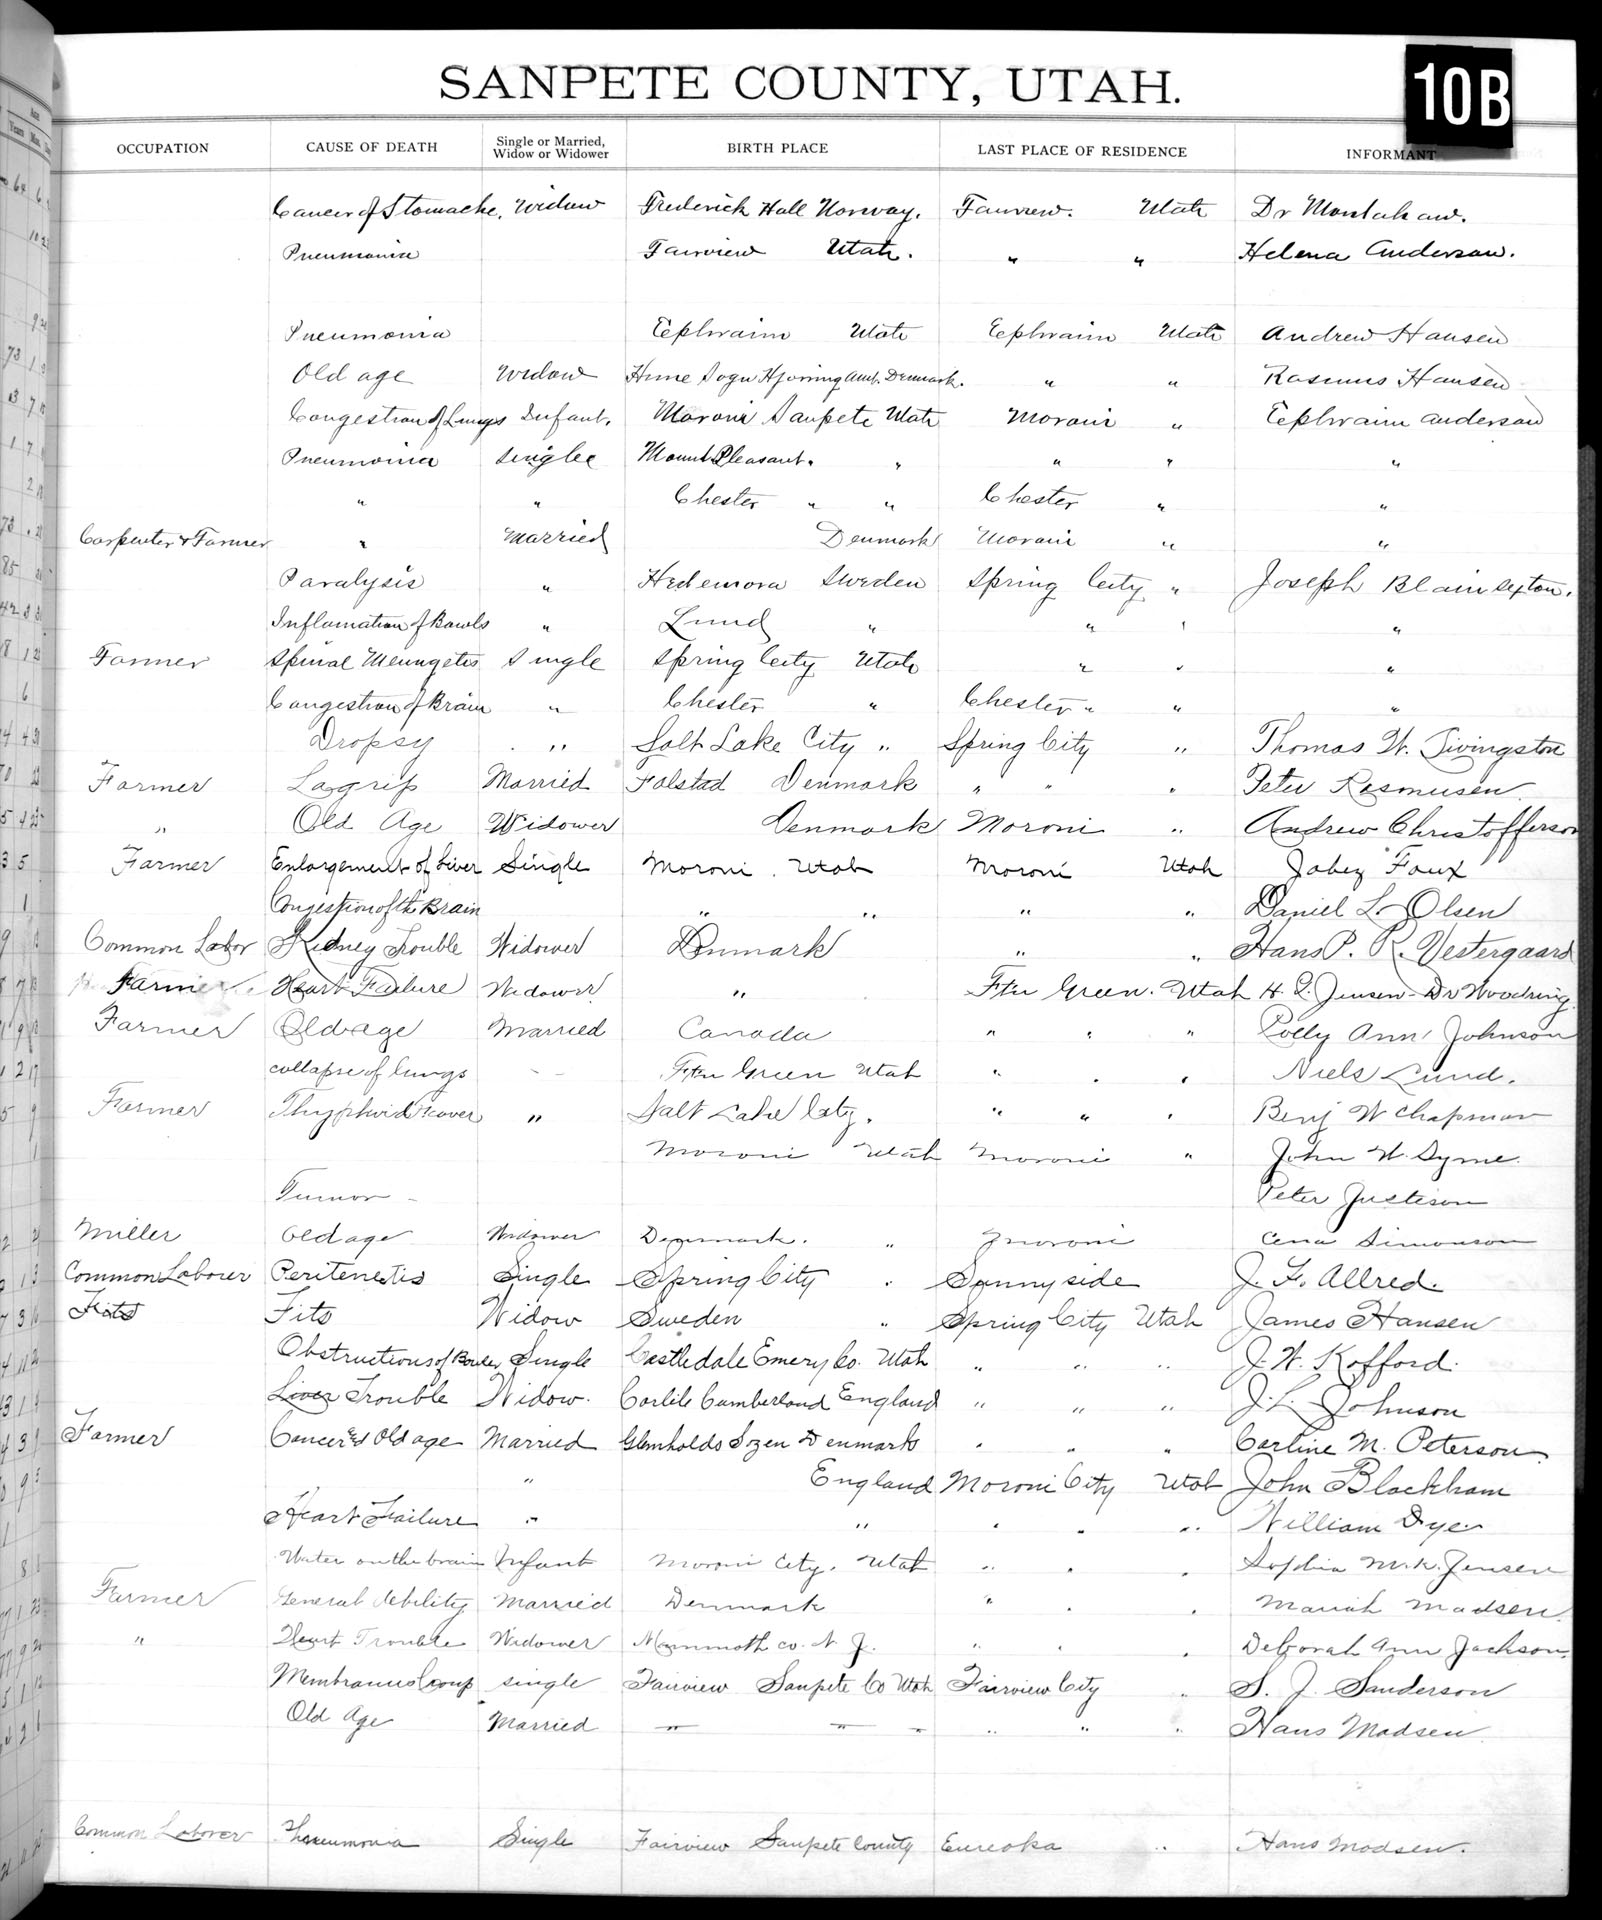 SANPETE COUNTY, UTAH.
10B
OCCUPATION CAUSE OF DEATH Single or Married, Widow or Widower BIRTH PLACE LAST PLACE OF RESIDENCE INFORMANT
Cancer of Stomache. Widow Frederick Hall Norway. Fairview. Utah Dr
Pneumonia Fairview Utah. " " Helena Anderson.
Pneumonia Eephraim Utah Eephraim Utah Andrew Hansen
Old age Widow Sogn Hjorring Amt. Denmark. " " Rasmus Hansen
Congestion of Lungs Infant. Moroni Sanpete Utah Moroni " Eephraim Anderson
Pneumonia Single Mount Pleasant. " " " "
" " Chester " " Chester " "
Carpenter & Farmer " Married Denmark Moroni " "
Paralysis " Hedemora Sweden Spring City " Joseph Blain Sexton.
Inflamation of Bowls " Lund " " " "
Farmer Spinal Single Spring City Utah " " "
Congestion of Brain " Chester " Chester " " "
Dropsy " Salt Lake City " Spring City " Thomas W. Livingston
Farmer Lagrip Married Falstad Denmark " " " Peter Rasmusen
" Old Age Widower Denmark Moroni " Andrew Christofferson
Farmer Enlargement of liver Single Moroni. Utah Moroni Utah Jabez Faux
Congestion of the Brain " " " " Daniel L. Olsen
Common Labor Kidney Trouble Widower Denmark " " Hans P. R. Vestergaard
Farmer Heart Failure Widower " Ftn Green. Utah H. Jensen - Dr Woodring
Farmer Old age Married Canada " " " Polly Ann Johnson
collapse of lungs - - Ftn Green Utah " " " Niels Lund.
Farmer Thyphoid Feaver " Salt Lake City. " " " Benj W Chapman
Moroni Utah Moroni " John W. Syme.
Tumor - Peter Justison
Miller Old age Widower Denmark. " Moroni Cena Simonson
Common Laborer Peritenetis Single Spring City " Sunnyside J. F. Allred.
Fits Fits Widow Sweden " Spring City Utah James Hansen
Obstructions of Single Castledale Emery Co. Utah " " " J. W. Kofford.
Liver Trouble Widow. Carlile Cumberland England " " " J. L. Johnson
Farmer Cancer & Old age Married Denmark " " " Carline M. Peterson
" England Moroni City Utah John Blackham
Heart Failure " " " " " William Dye
Water on the brain Infant Moroni City. Utah " " " Sophia M. K. Jensen
Farmer General debility Married Denmark " " " Mariah Madsen.
" Heart Trouble Widower Monmoth co. N. J. " " " Deborah Ann Jackson.
Membranus Croup single Fairview Sanpete Co Utah Fairview City " S. J. Sanderson
Old Age Married " " " " " " Hans Madsen
Common Laborer Phneumonia Single Fairview Sanpete County Eureoka " Hans Madsen.